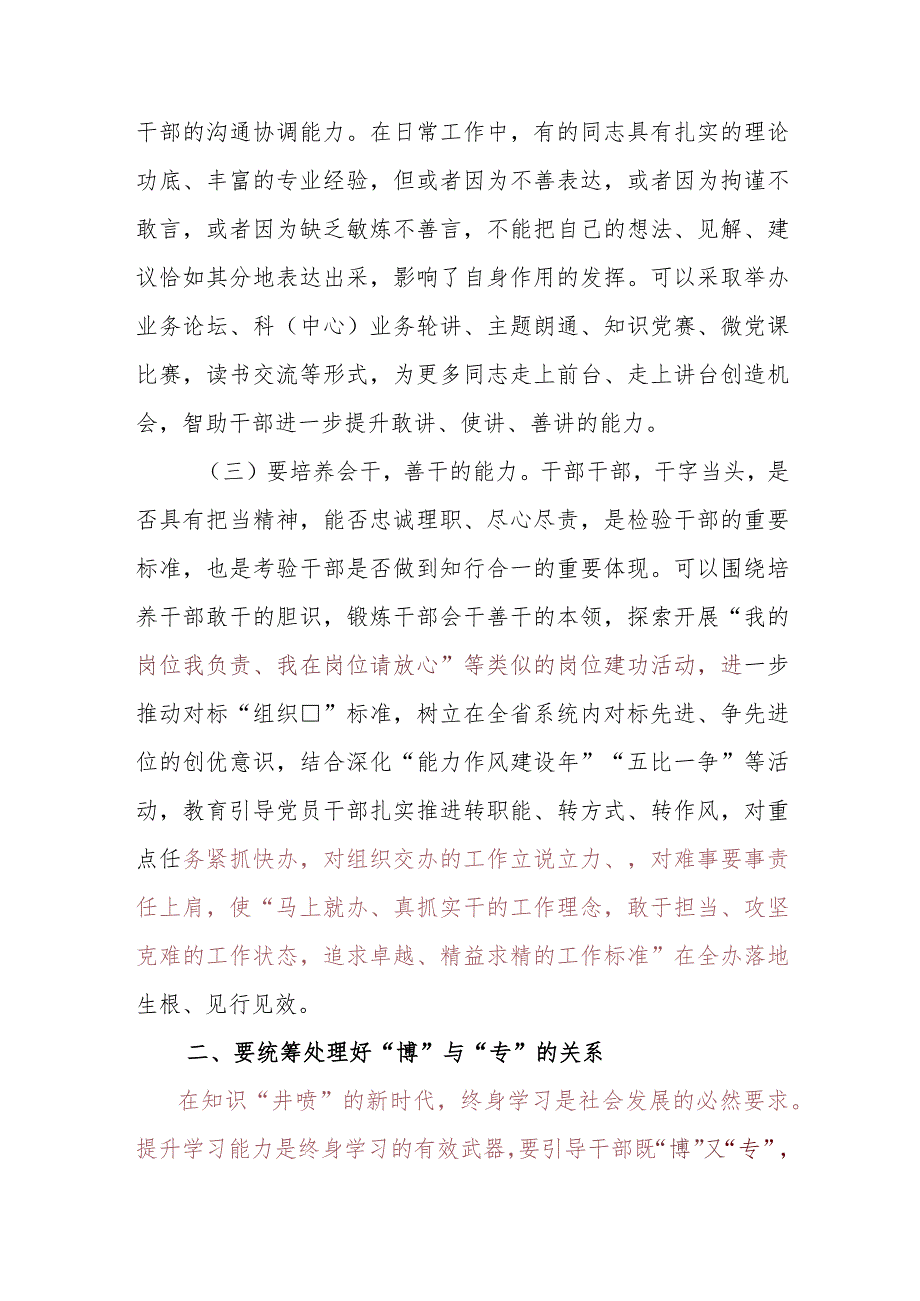 干部的沟通协调能力。在日常工作中，有的同志具有扎实的理论
功底、丰富的专业经验，但或者因为不善表达，或者因为拘谨不
敢言，或者因为缺乏敏炼不善言，不能把自己的想法、见解、建
议恰如其分地表达出采，影响了自身作用的发挥。可以采取举办
业务论坛、科（中心）业务轮讲、主题朗通、知识党赛、微党课
比赛，读书交流等形式，为更多同志走上前台、走上讲台创造机
会，智助干部进一步提升敢讲、使讲、善讲的能力。
（三）要培养会干，善干的能力。干部干部，干字当头，是
否具有把当精神，能否忠诚理职、尽心尽责，是检验干部的重要
标准，也是考验干部是否做到知行合一的重要体现。可以围绕培
养干部敢干的胆识，锻炼干部会干善干的本领，探索开展“我的
岗位我负责、我在岗位请放心”等类似的岗位建功活动，进一步
推动对标“组织□”标准，树立在全省系统内对标先进、争先进
位的创优意识，结合深化“能力作风建设年”“五比一争”等活
动，教育引导党员干部扎实推进转职能、转方式、转作风，对重
点任务紧抓快办，对组织交办的工作立说立力、，对难事要事责
任上肩，使“马上就办、真抓实干的工作理念，敢于担当、攻坚
克难的工作状态，追求卓越、精益求精的工作标准”在全办落地
生根、见行见效。
二、要统筹处理好“博”与“专”的关系
在知识“井喷”的新时代，终身学习是社会发展的必然要求。
提升学习能力是终身学习的有效武器，要引导干部既“博”又“专”，